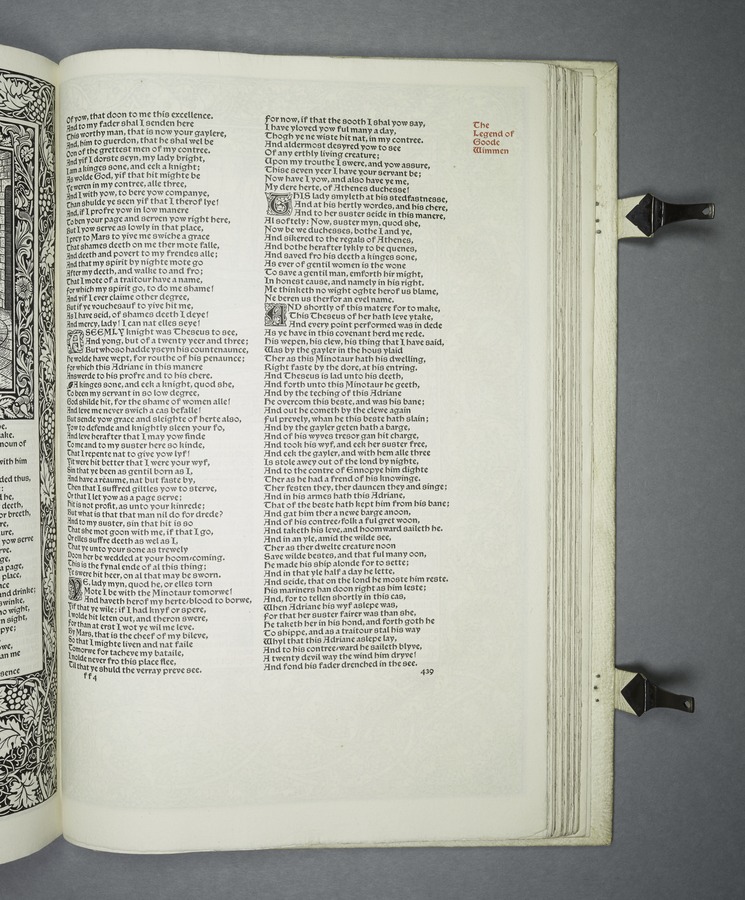 pe.
take.
noun of
with him
ded thus,
d he,
deth,
or breeth,
re,
ture,
yow serve
rve.
ge.
a page,
place,
ace
and drinke;
swinke.
no wight,
n sight,
pye;
owe,
an me
sence
Of yow, that doon to me this excellence.
And to my fader shal I senden here
This worthy man, that is now your gaylere,
And, him to guerdon, that he shal wel be
Oon of the grettest men of my contree.
And yif I dorste seyn, my lady bright,
I am a kinges sone, and eek a knight;
As wolde God, yif that hit mighte be
Ye weren in my contree, alle three,
And I with yow, to bere yow companye,
Than shulde ye seen yif that I therof lye!
And, if I profre yow in low manere
To ben your page and serven yow right here,
But I yow serve as lowly in that place,
I prey to Mars to yive me swiche a grace
That shames deeth on me ther mote falle,
And deeth and povert to my frendes alle;
And that my spirit by nighte mote go
After my deeth, and walke to and fro;
That I mote of a traitour have a name,
For which my spirit go, to do me shame!
And yif I ever claime other degree,
But if ye vouchesauf to yive hit me,
As I have seid, of shames deeth I deye!
And mercy, lady! I can nat elles seye!
A SEEMLY knight was Theseus to see,
And yong, but of a twenty yeer and three;
But whoso hadde yseyn his countenaunce,
He wolde have wept, for routhe of his penaunce;
For which this Adriane in this manere
Answerde to his profre and to his chere.
A kinges sone, and eek a knight, quod she,
To been my servant in so low degree,
God shilde hit, for the shame of women alle!
And leve me never swich a cas befalle!
But sende yow grace and sleighte of herte also,
Yow to defende and knightly sleen your fo,
And leve herafter that I may yow finde
To me and to my suster here so kinde,
That I repente nat to give yow lyf!
Yit were hit better that I were your wyf,
Sin that ye been as gentil born as I,
And have a reaume, nat but faste by,
Then that I suffred giltles yow to sterve,
Or that I let yow as a page serve;
Hit is not profit, as unto your kinrede;
But what is that that man nil do for drede?
And to my suster, sin that hit is so
That she mot goon with me, if that I go,
Or elles suffre deeth as wel as I,
That ye unto your sone as trewely
Doon her be wedded at your hoom-coming.
This is the fynal ende of al this thing;
Ye swere hit heer, on al that may be sworn.
YE, lady myn, quod he, or elles torn
Mote I be with the Minotaur tomorwe!
And haveth herof my herte-blood to borwe,
Yif that ye wile; if I had knyf or spere,
I wolde hit leten out, and theron swere,
For than at erst I wot ye wil me leve.
By Mars, that is the cheef of my bileve,
So that I mighte liven and nat faile
Tomorwe for tacheve my bataile,
I nolde never fro this place flee,
Til that ye shulde the verray preve see.
ff4
For now, if that the sooth I shal yow say,
I have yloved yow ful many a day,
Thogh ye ne wiste hit nat, in my contree.
And aldermost desyred yow to see
Of any erthly living creature;
Upon my trouthe I swere, and yow assure,
Thise seven yeer I have your servant be;
Now have I yow, and also have ye me,
My dere herte, of Athenes duchesse!
THIS lady smyleth at his stedfastnesse,
And at his hertly wordes, and his chere,
And to her suster seide in this manere,
Al softely: Now, suster myn, quod she,
Now be we duchesses, bothe I and ye,
And sikered to the regals of Athenes,
And bothe herafter lykly to be quenes,
And saved fro his deeth a kinges sone,
As ever of gentil women is the wone
To save a gentil man, emforth hir might,
In honest cause, and namely in his right.
Me thinketh no wight oghte herof us blame,
Ne beren us therfor an evel name.
AND shortly of this matere for to make,
This Theseus of her hath leve ytake,
And every point performed was in dede
As ye have in this covenant herd me rede.
His wepen, his clew, his thing that I have said,
Was by the gayler in the hous ylaid
Ther as this Minotaur hath his dwelling,
Right faste by the dore, at his entring.
And Theseus is lad unto his deeth,
And forth unto this Minotaur he geeth,
And by the teching of this Adriane
He overcom this beste, and was his bane;
And out he cometh by the clewe again
Ful prevely, whan he this beste hath slain;
And by the gayler geten hath a barge,
And of his wyves tresor gan hit charge,
And took his wyf, and eek her suster free,
And eek the gayler, and with hem alle three
Is stole awey out of the lond by nighte,
And to the contre of Ennopye him dighte
Ther as he had a frend of his knowinge.
Ther festen they, ther dauncen they and singe;
And in his armes hath this Adriane,
That of the beste hath kept him from his bane;
And gat him ther a newe barge anoon,
And of his contree-folk a ful gret woon,
And taketh his leve, and hoomward saileth he.
And in an yle, amid the wilde see,
Ther as ther dwelte creature noon
Save wilde bestes, and that ful many oon,
He made his ship alonde for to sette;
And in that yle half a day he lette,
And seide, that on the lond he moste him reste.
His mariners han doon right as him leste;
And, for to tellen shortly in this cas,
Whan Adriane his wyf aslepe was,
For that her suster fairer was than she,
He taketh her in his hond, and forth goth he
To shippe, and as a traitour stal his way
Whyl that this Adriane aslepe lay,
And to his contree-ward he saileth blyve,
A twenty devil way the wind him dryve!
And fond his fader drenched in the see.
429
The
Legend of
Goode
Wimmen